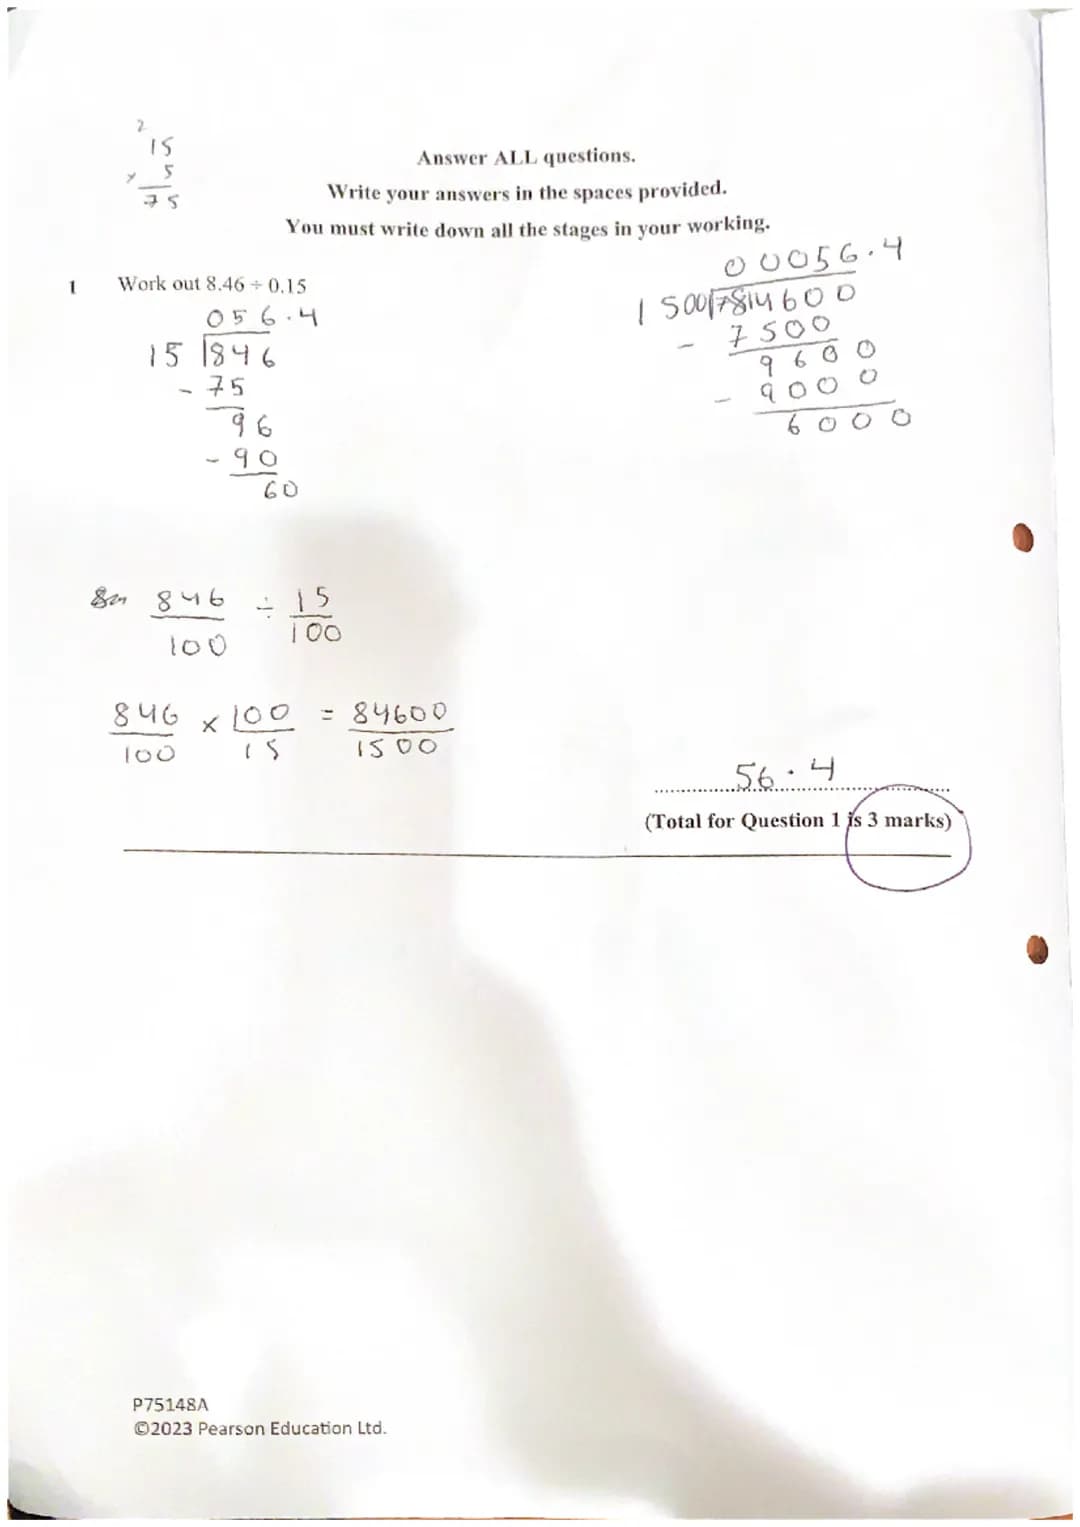 2
15
× 5
75
Answer ALL questions.
Write your answers in the spaces provided.
You must write down all the stages in your working.
1 Work out 8.46 ÷ 0.15
056.4
15 846
- 75
96
- 90
60
00056.4
1500 7814600
- 7500
9600
- 9000
6000
846 ÷ 15
100 100
846 × 100 = 84600
100 15 1500
56.4
(Total for Question 1 is 3 marks)
P75148A
©2023 Pearson Education Ltd.